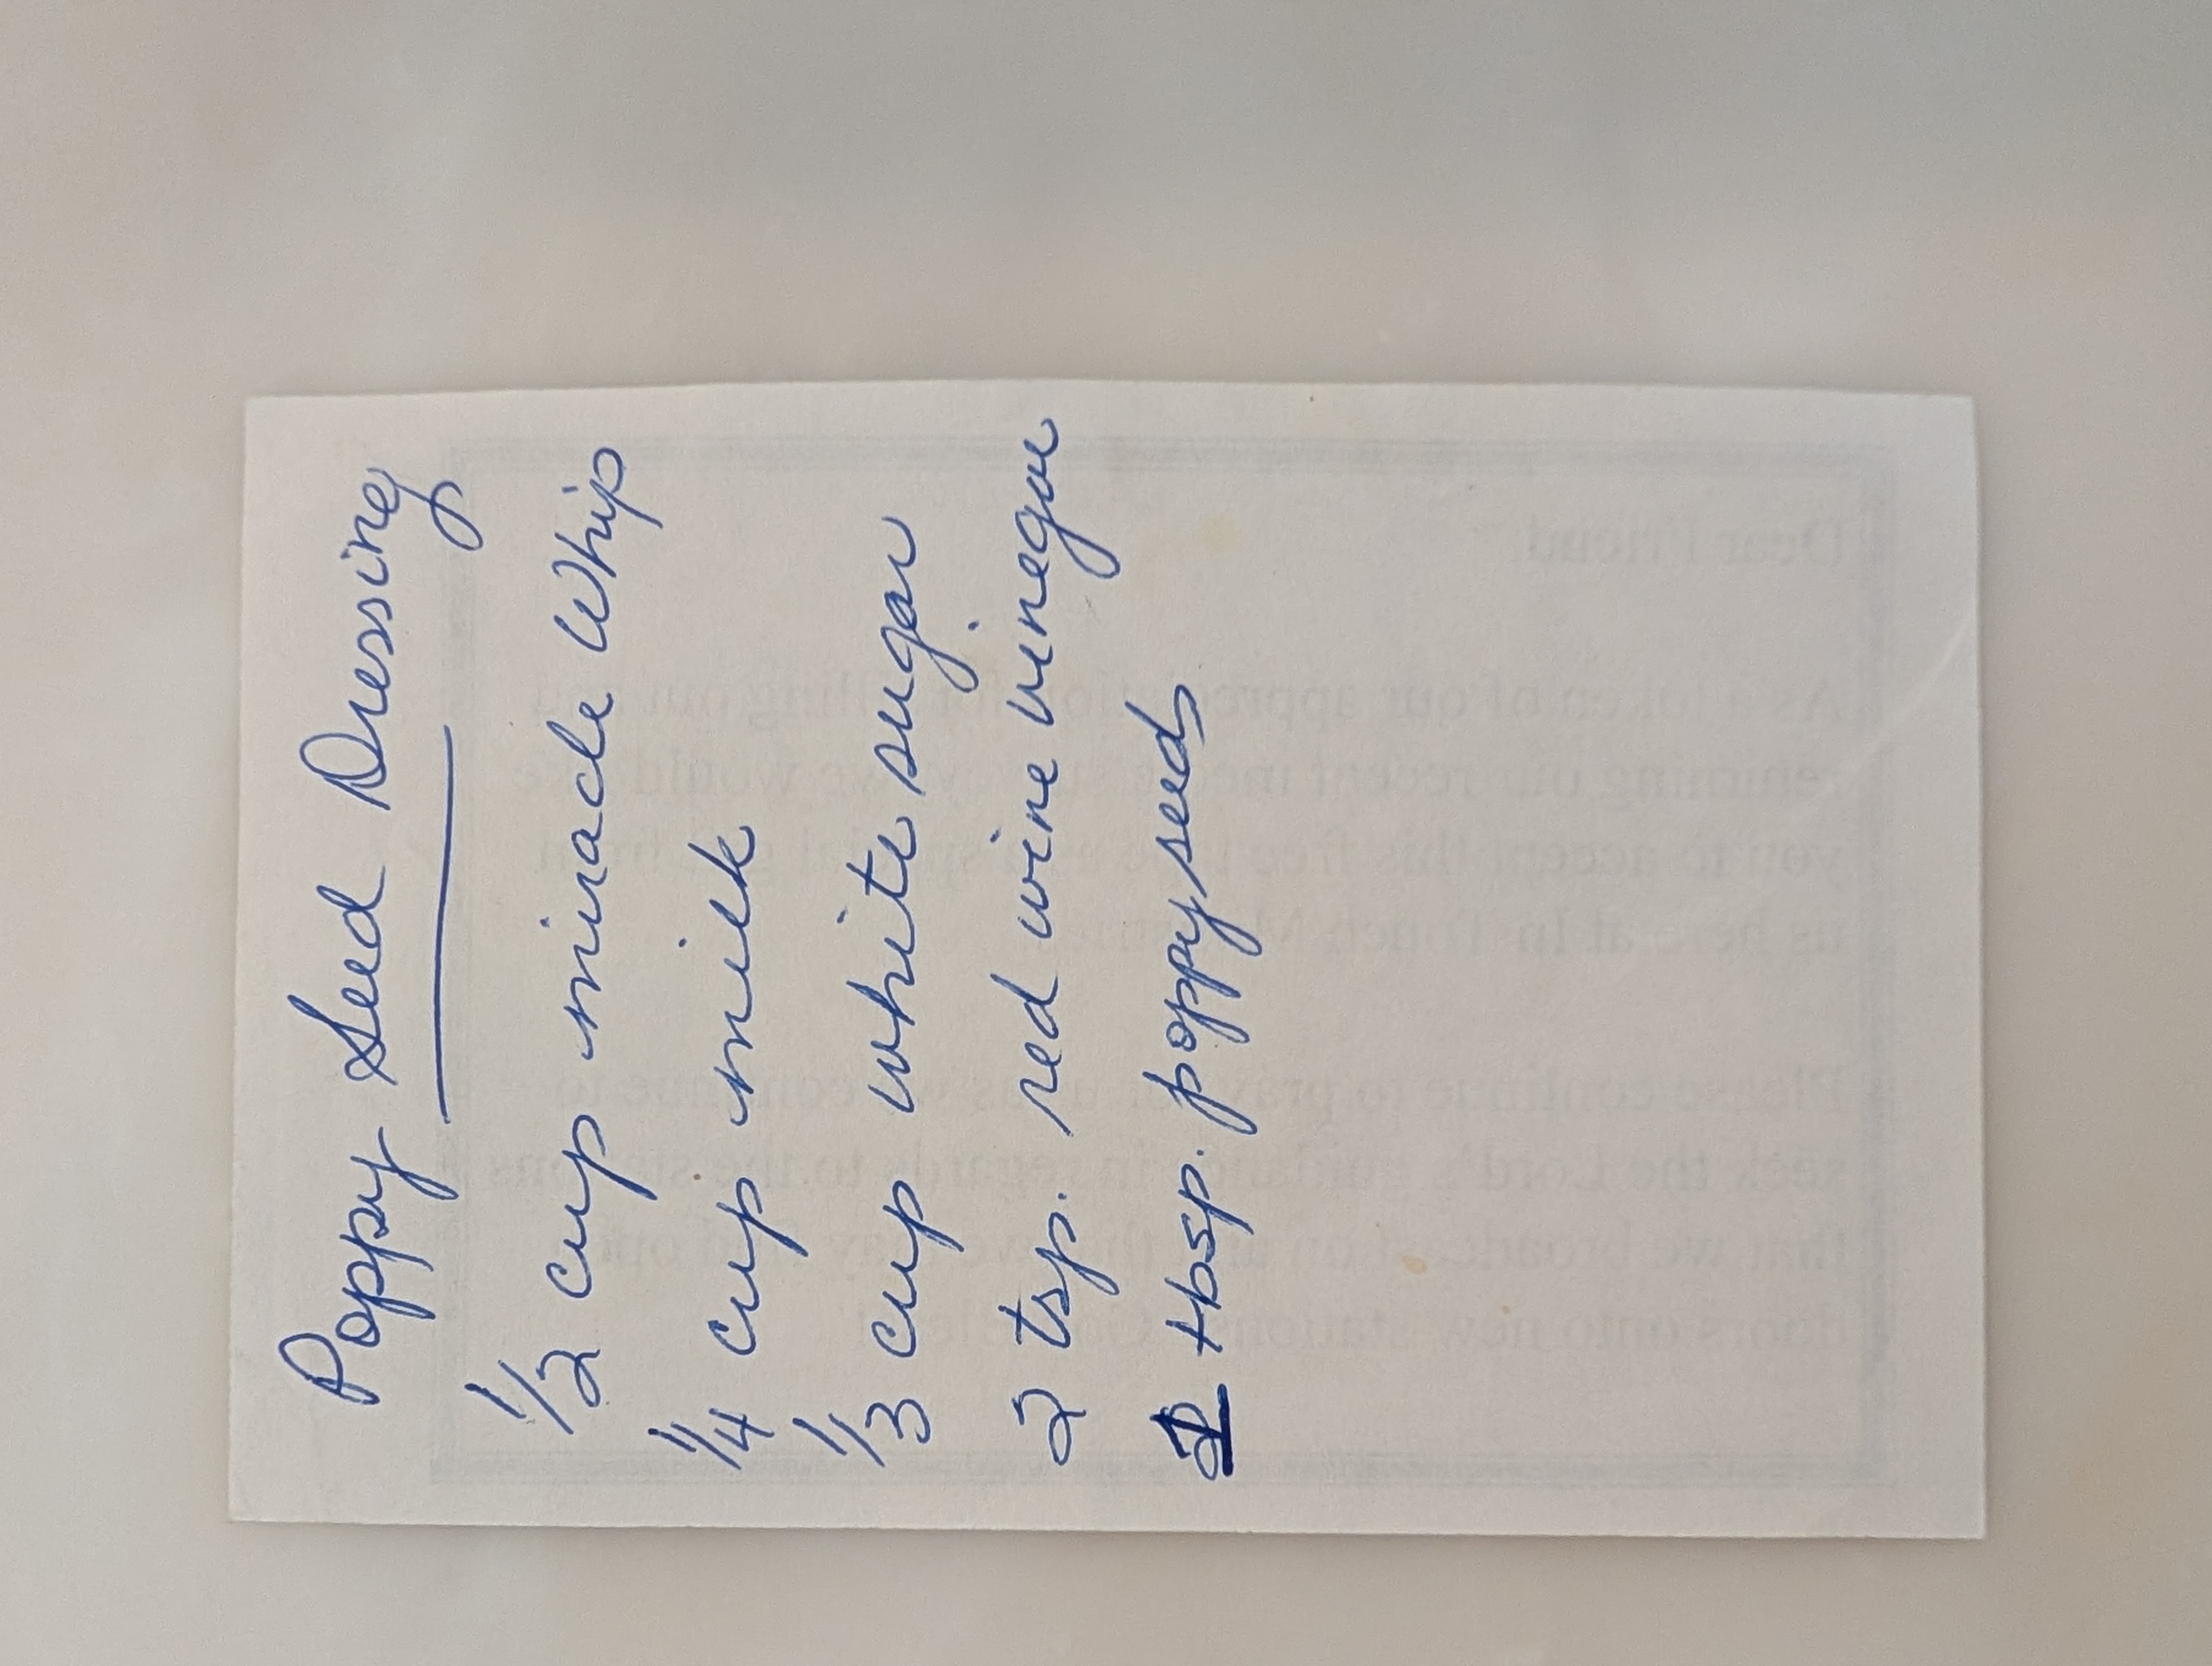 Poppy Seed Dressing
1/2 cup miracle Whip
1/4 cup milk
1/3 cup white sugar
2 tsp. red wine vinegar
1 tbsp. poppy seeds
Dear Friend
As a token of our appreciation for filling out and
returning our recent survey, we would like
you to accept this free
us here at In Touch
Please continue to pray for us as we continue to
seek the Lord's guidance in regards to the stations
that we broadcast on and
onto new stations